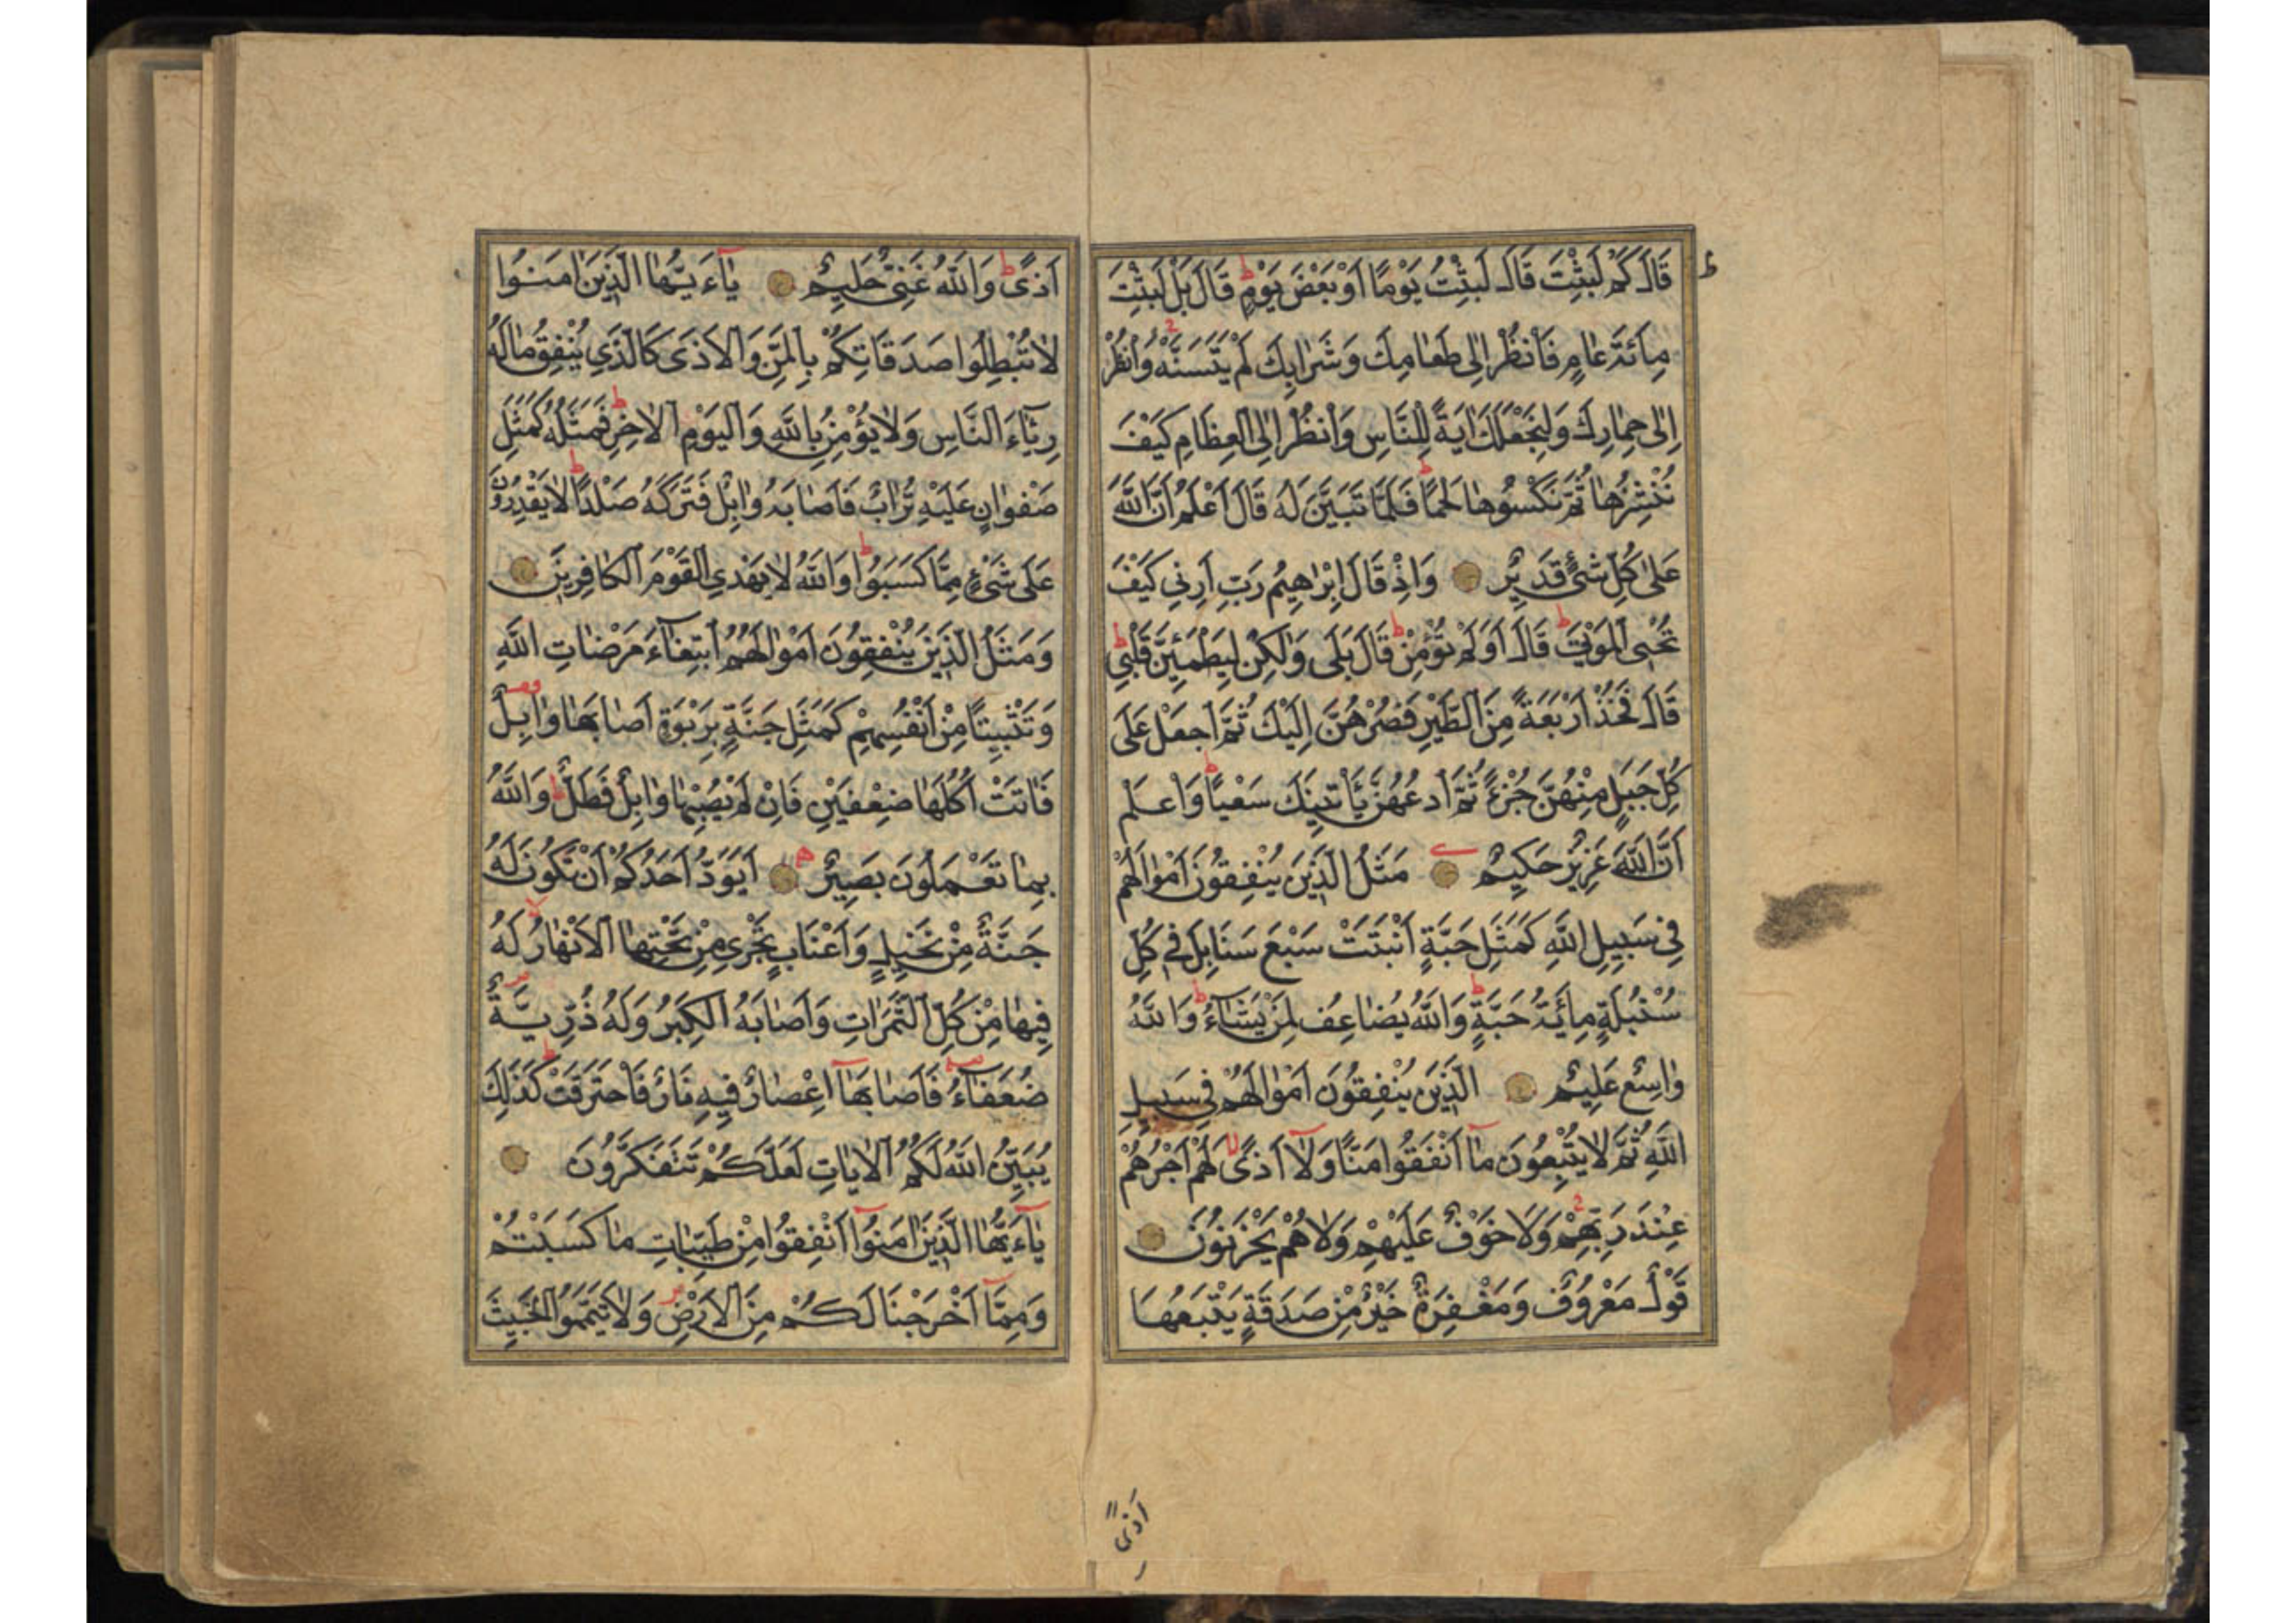 قَالَ كَمْ لَبِثْتَ قَالَ لَبِثْتُ يَوْمًا اَوْ بَعْضَ يَوْمٍ ط قَالَ بَلْ لَبِثْتَ
مِائَةَ عَامٍ فَانْظُرْ اِلٰى طَعَامِكَ وَشَرَابِكَ لَمْ يَتَسَنَّهْ وَانْظُرْ
اِلٰى حِمَارِكَ وَلِنَجْعَلَكَ اٰيَةً لِلنَّاسِ وَانْظُرْ اِلَى الْعِظَامِ كَيْفَ
نُنْشِزُهَا ثُمَّ نَكْسُوهَا لَحْمًا ط فَلَمَّا تَبَيَّنَ لَهُ قَالَ اَعْلَمُ اَنَّ اللّٰهَ
عَلٰى كُلِّ شَىْءٍ قَدِيرٌ وَاِذْ قَالَ اِبْرٰهِيمُ رَبِّ اَرِنِي كَيْفَ
تُحْيِى الْمَوْتٰى ط قَالَ اَوَلَمْ تُؤْمِنْ ط قَالَ بَلٰى وَلٰكِنْ لِيَطْمَئِنَّ قَلْبِي ط
قَالَ فَخُذْ اَرْبَعَةً مِنَ الطَّيْرِ فَصُرْهُنَّ اِلَيْكَ ثُمَّ اجْعَلْ عَلٰى
كُلِّ جَبَلٍ مِنْهُنَّ جُزْءً ثُمَّ ادْعُهُنَّ يَأْتِينَكَ سَعْيًا ط وَاعْلَمْ
اَنَّ اللّٰهَ عَزِيزٌ حَكِيمٌ مَثَلُ الَّذِينَ يُنْفِقُونَ اَمْوَالَهُمْ
فِي سَبِيلِ اللّٰهِ كَمَثَلِ حَبَّةٍ اَنْبَتَتْ سَبْعَ سَنَابِلَ فِي كُلِّ
سُنْبُلَةٍ مِائَةُ حَبَّةٍ ط وَاللّٰهُ يُضَاعِفُ لِمَنْ يَشَاءُ ط وَاللّٰهُ
وَاسِعٌ عَلِيمٌ الَّذِينَ يُنْفِقُونَ اَمْوَالَهُمْ فِي سَبِيلِ
اللّٰهِ ثُمَّ لَا يُتْبِعُونَ مَا اَنْفَقُوا مَنًّا وَلَا اَذًى لا لَهُمْ اَجْرُهُمْ
عِنْدَ رَبِّهِمْ وَلَا خَوْفٌ عَلَيْهِمْ وَلَا هُمْ يَحْزَنُونَ
قَوْلٌ مَعْرُوفٌ وَمَغْفِرَةٌ خَيْرٌ مِنْ صَدَقَةٍ يَتْبَعُهَا
اَذًى
اَذًى ط وَاللّٰهُ غَنِىٌّ حَلِيمٌ يٰٓاءَيُّهَا الَّذِينَ اٰمَنُوا
لَا تُبْطِلُوا صَدَقَاتِكُمْ بِالْمَنِّ وَالْاَذٰى كَالَّذِي يُنْفِقُ مَالَهُ
رِئَاءَ النَّاسِ وَلَا يُؤْمِنُ بِاللّٰهِ وَالْيَوْمِ الْاٰخِرِ ط فَمَثَلُهُ كَمَثَلِ
صَفْوَانٍ عَلَيْهِ تُرَابٌ فَاَصَابَهُ وَابِلٌ فَتَرَكَهُ صَلْدًا ط لَا يَقْدِرُونَ
عَلٰى شَىْءٍ مِمَّا كَسَبُوا ط وَاللّٰهُ لَا يَهْدِي الْقَوْمَ الْكَافِرِينَ
وَمَثَلُ الَّذِينَ يُنْفِقُونَ اَمْوَالَهُمُ ابْتِغَاءَ مَرْضَاتِ اللّٰهِ
وَتَثْبِيتًا مِنْ اَنْفُسِهِمْ كَمَثَلِ جَنَّةٍ بِرَبْوَةٍ اَصَابَهَا وَابِلٌ
فَاٰتَتْ اُكُلَهَا ضِعْفَيْنِ فَاِنْ لَمْ يُصِبْهَا وَابِلٌ فَطَلٌّ ط وَاللّٰهُ
بِمَا تَعْمَلُونَ بَصِيرٌ اَيَوَدُّ اَحَدُكُمْ اَنْ تَكُونَ لَهُ
جَنَّةٌ مِنْ نَخِيلٍ وَاَعْنَابٍ تَجْرِي مِنْ تَحْتِهَا الْاَنْهَارُ لا لَهُ
فِيهَا مِنْ كُلِّ الثَّمَرَاتِ وَاَصَابَهُ الْكِبَرُ وَلَهُ ذُرِّيَّةٌ
ضُعَفَاءُ فَاَصَابَهَا اِعْصَارٌ فِيهِ نَارٌ فَاحْتَرَقَتْ ط كَذٰلِكَ
يُبَيِّنُ اللّٰهُ لَكُمُ الْاٰيَاتِ لَعَلَّكُمْ تَتَفَكَّرُونَ
يٰٓاءَيُّهَا الَّذِينَ اٰمَنُوا اَنْفِقُوا مِنْ طَيِّبَاتِ مَا كَسَبْتُمْ
وَمِمَّا اَخْرَجْنَا لَكُمْ مِنَ الْاَرْضِ وَلَا تَيَمَّمُوا الْخَبِيثَ